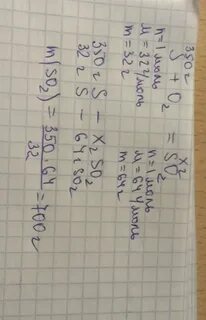 350г        x г
S + O₂ = SO₂
n=1моль        n=1моль
M=32г/моль        M=64г/моль
m=32г        m=64г
350г S – x г SO₂
32г S – 64г SO₂
m(SO₂) = 350·64/32 = 700г